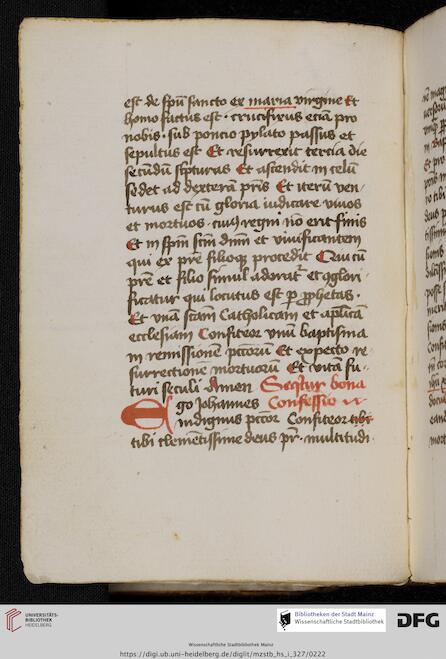 est de spū sancto ex maria virgine Et
homo factus est · crucifixus eciā pro
nobis · sub poncio pylato passus et
sepultus est Et resurrexit tercia die
secūdū scpturas Et ascendit in celū
sedet ad dexterā pris Et iterū ven-
turus est cū gloria iudicare viuos
et mortuos · cuiꝯ regni nō erit finis
Et in spm scm dnm et viuificantem
qui ex prē filioq procedit Qui cū
prē et filio simul adorat et ꝯglori-
ficatur qui locutus est p prophetas ·
Et vnā scam Catholicam et aplicā
ecclesiam Confiteor vnū baptisma
in remissionem pctorū Et expecto re-
surrectione mortuorū Et vitā fu-
turi seculi Amen Seqtur bona
Ego Johannes Confessio
indignus pctor Confiteor tibi
tibi clementissime deus pr · multitudi
UNIVERSITÄTS-
BIBLIOTHEK
HEIDELBERG
Bibliotheken der Stadt Mainz
Wissenschaftliche Stadtbibliothek
DFG
Wissenschaftliche Stadtbibliothek Mainz
https://digi.ub.uni-heidelberg.de/diglit/mzstb_hs_i_327/0222